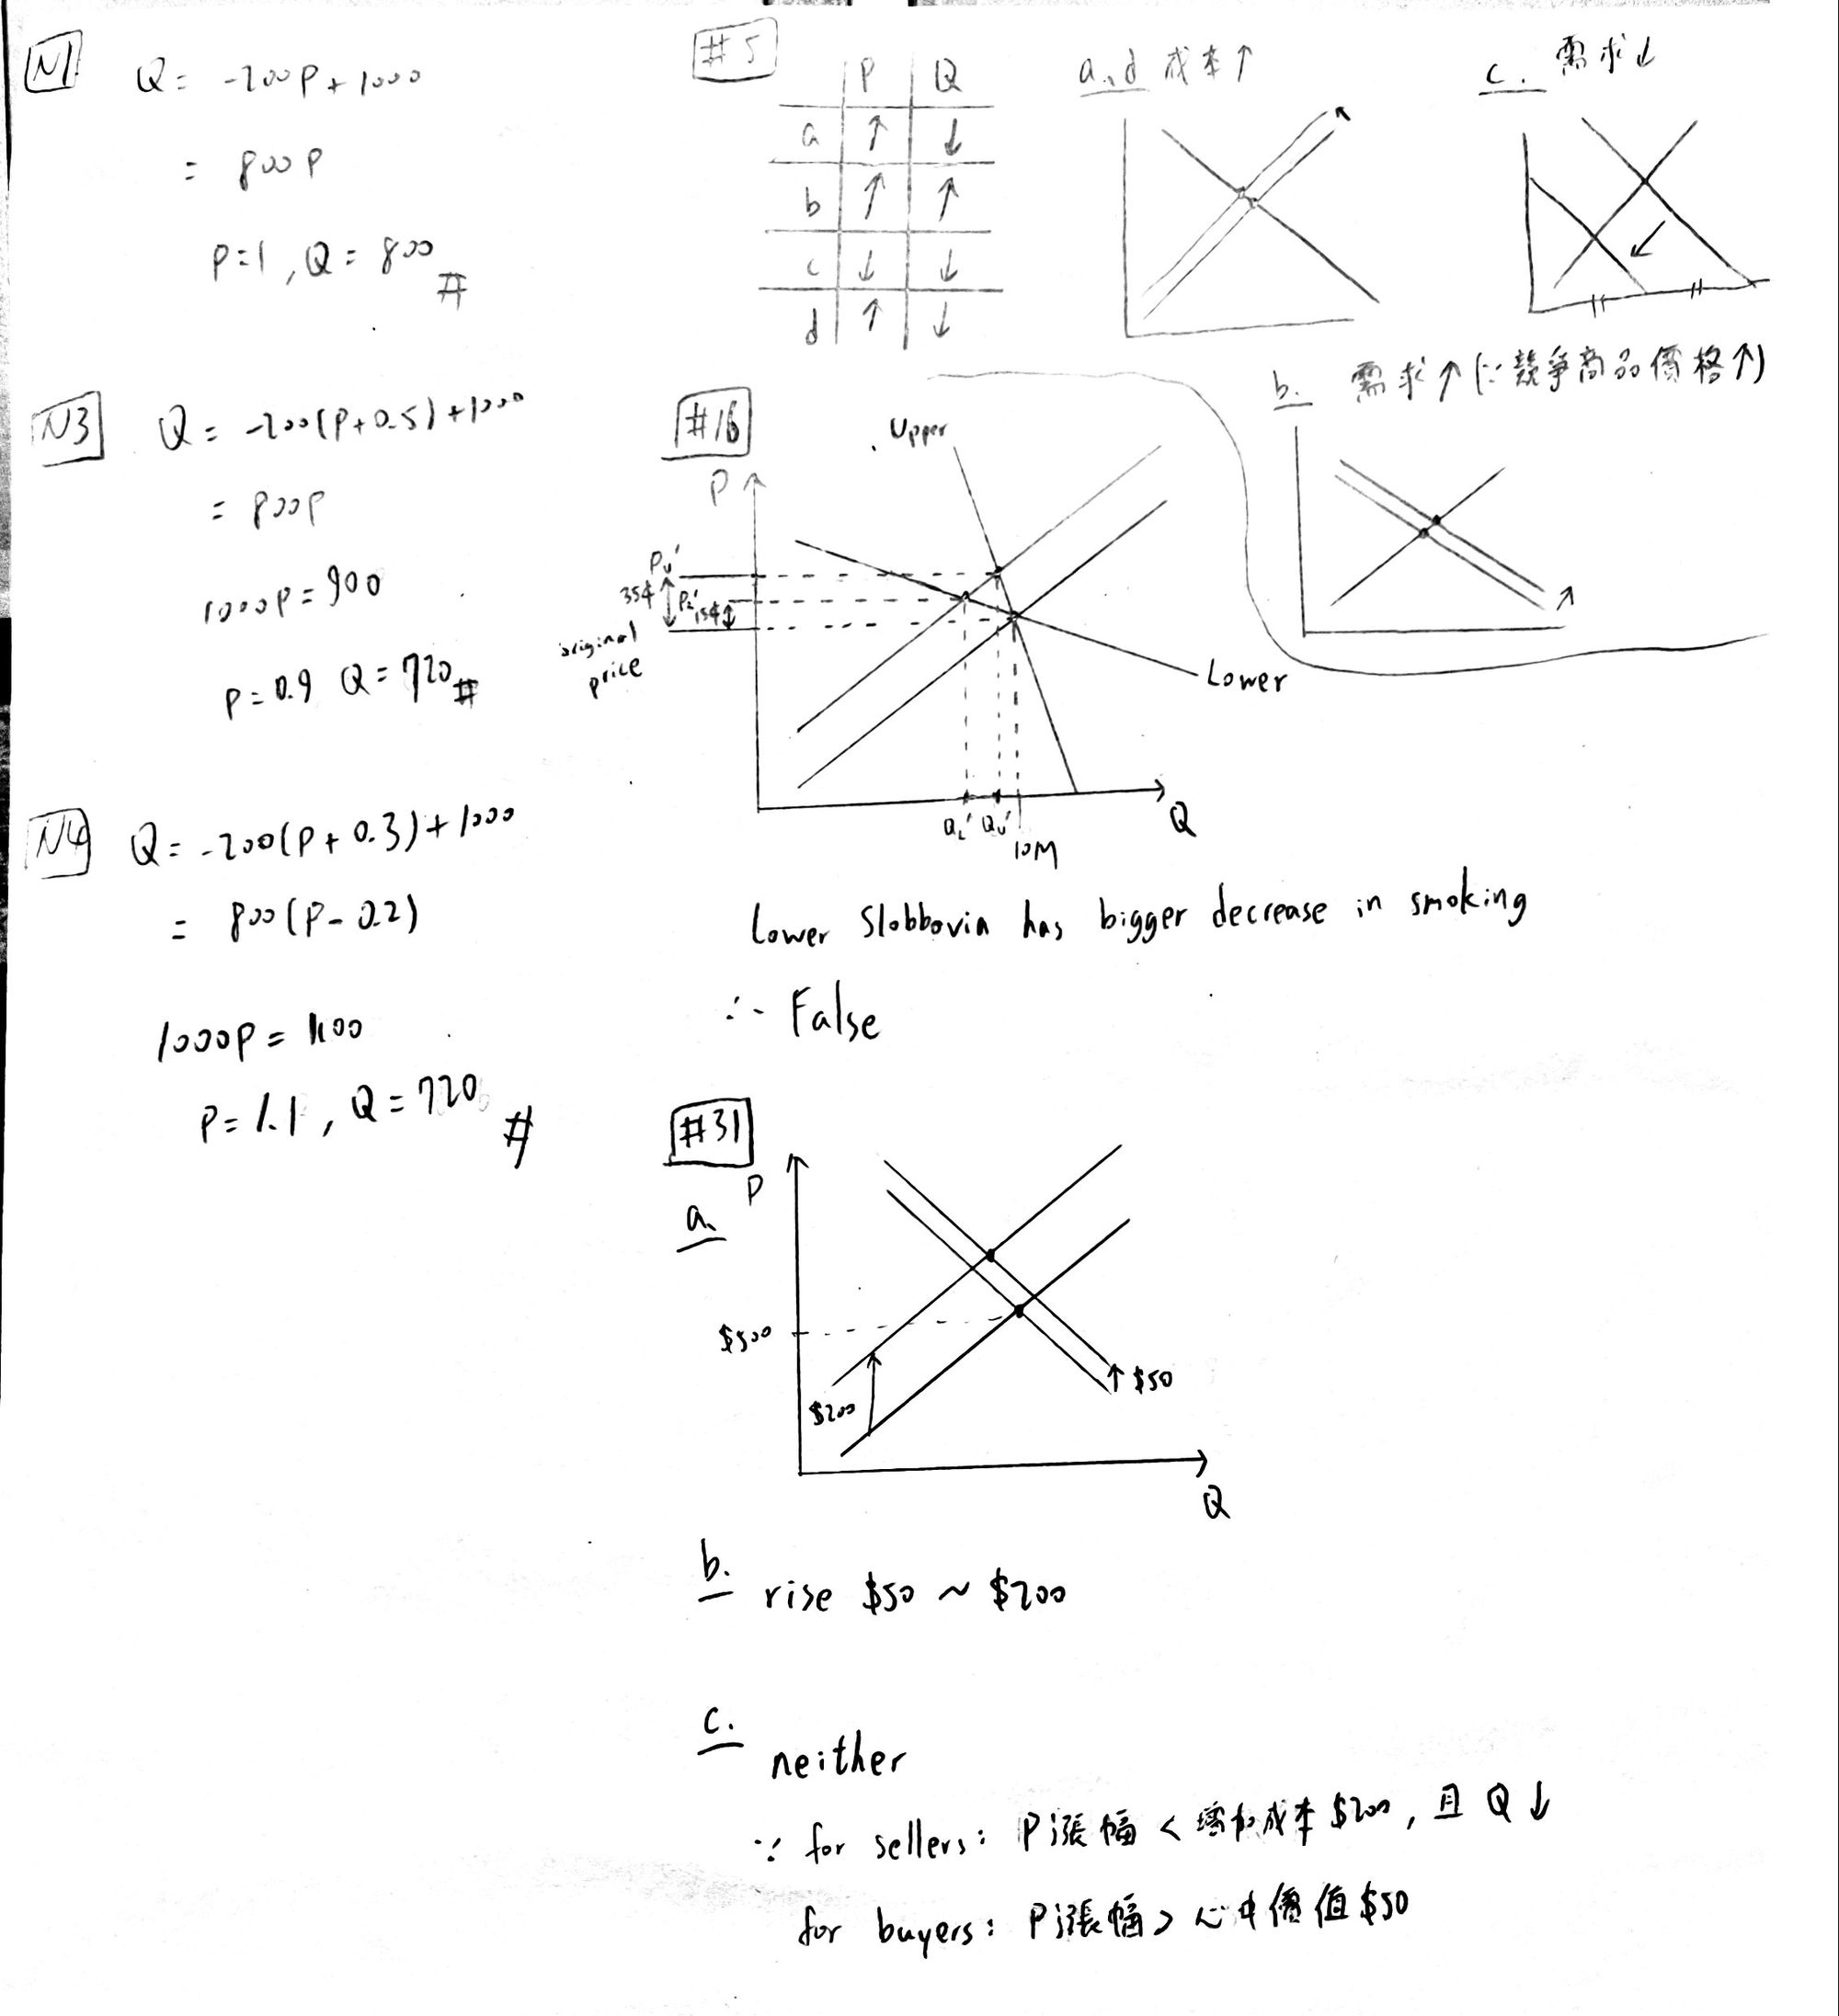 N1
Q = -200P + 1000
= 800P
P=1, Q = 800 #
N3
Q = -200(P+0.5)+1000
= 800P
1000P = 900
P=0.9 Q=720 #
N4
Q = -200(P+0.3)+1000
= 800(P-0.2)
1000P = 1100
P=1.1, Q=720 #
#5
P Q
a ↑ ↓
b ↑ ↑
c ↓ ↓
d ↑ ↓
a、d 成本↑
c. 需求↓
b. 需求↑(∵競爭商品價格↑)
#16
Upper
P
Pu'
35¢ PL' 15¢
original
price
Lower
QL' Qu'
10M
Q
Lower Slobbovia has bigger decrease in smoking
∴ False
#31
a.
P
$500
$200
↑ $50
Q
b.
rise $50 ~ $200
c.
neither
∵ for sellers: P漲幅 < 增加成本$200, 且 Q↓
for buyers: P漲幅 > 心中價值$50